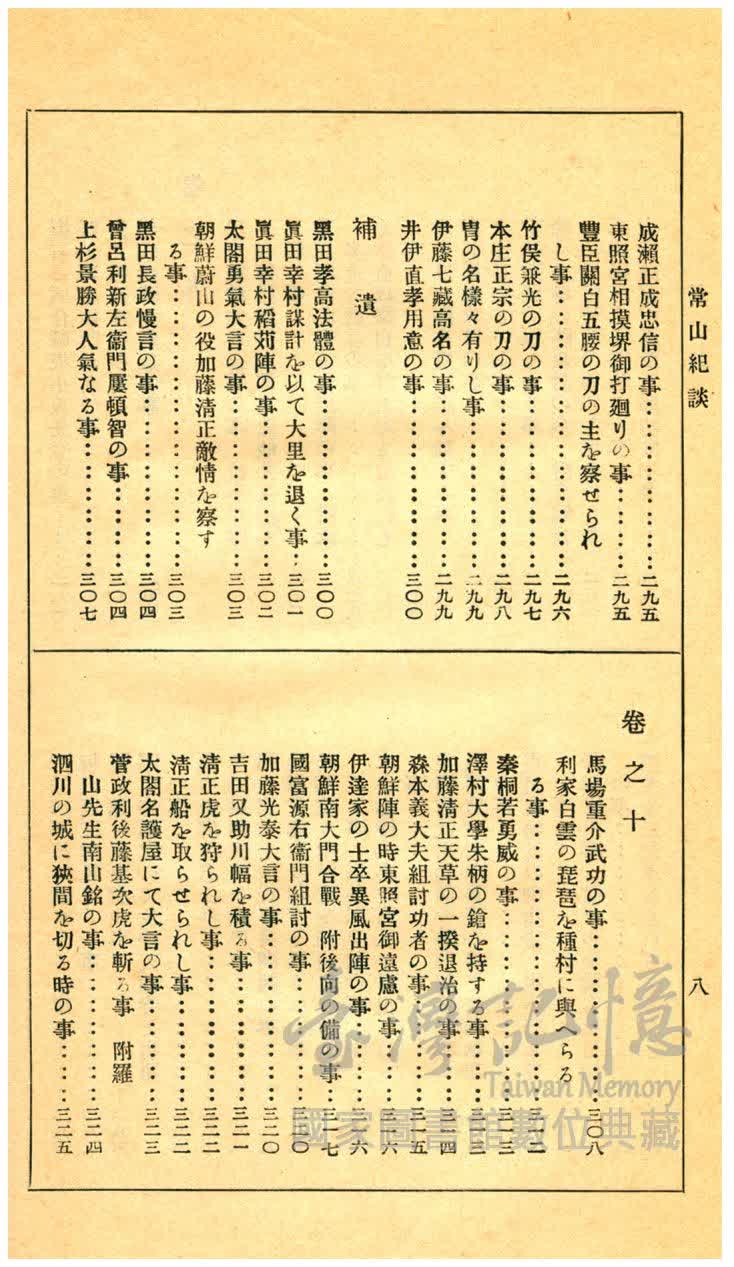 常山紀談
八
成瀬正成忠信の事：：：：：：：：二九五
東照宮相摸堺御打廻りの事：：：：二九五
豐臣關白五腰の刀の主を察せられ
し事：：：：：：：：：：：：：二九六
竹俣兼光の刀の事：：：：：：：：二九七
本庄正宗の刀の事：：：：：：：：二九八
冑の名樣々有りし事：：：：：：：二九九
伊藤七藏高名の事：：：：：：：：二九九
井伊直孝用意の事：：：：：：：：三〇〇
補遺
黑田孝高法體の事：：：：：：：：三〇〇
眞田幸村謀計を以て大里を退く事：三〇一
眞田幸村稻苅陣の事：：：：：：：三〇二
太閤勇氣大言の事：：：：：：：：三〇三
朝鮮蔚山の役加藤清正敵情を察す
る事：：：：：：：：：：：：：三〇三
黑田長政慢言の事：：：：：：：：三〇四
曾呂利新左衞門屢頓智の事：：：：三〇四
上杉景勝大人氣なる事：：：：：：三〇七
卷之十
馬場重介武功の事：：：：：：：：三〇八
利家白雲の琵琶を種村に與へらる
る事：：：：：：：：：：：：：三一二
秦桐若勇威の事：：：：：：：：：三一三
澤村大學朱柄の鎗を持する事：：：三一三
加藤清正天草の一揆退治の事：：：三一四
森本義大夫組討功者の事：：：：：三一五
朝鮮陣の時東照宮御遠慮の事：：：三一六
伊達家の士卒異風出陣の事：：：：三一六
朝鮮南大門合戰　附後向の備の事：三一七
國富源右衞門組討の事：：：：：：三二〇
加藤光泰大言の事：：：：：：：：三二〇
吉田又助川幅を積る事：：：：：：三二一
清正虎を狩られし事：：：：：：：三二二
清正船を取らせられし事：：：：：三二二
太閤名護屋にて大言の事：：：：：三二三
菅政利後藤基次虎を斬る事　附羅
山先生南山銘の事：：：：：：：三二四
泗川の城に狹間を切る時の事：：：三二五
臺灣記憶
Taiwan Memory
國家圖書館數位典藏